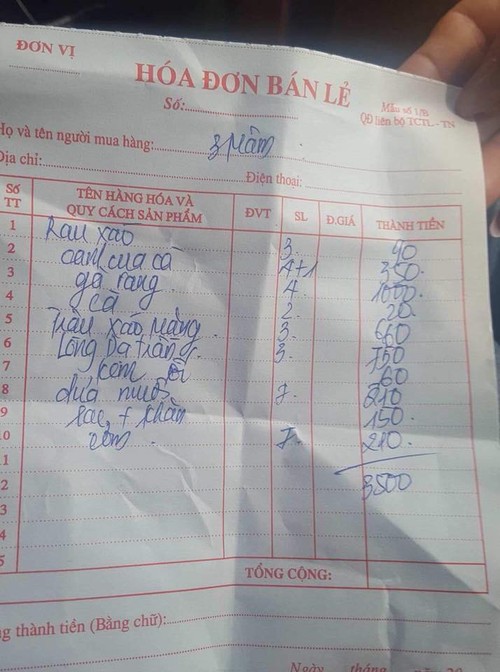 ĐƠN VỊ
HÓA ĐƠN BÁN LẺ
Số:
Mẫu số 1/B
QĐ liên bộ TCTL - TN
Họ và tên người mua hàng: 3 mâm
Địa chỉ: Điện thoại:
Số TT TÊN HÀNG HÓA VÀ QUY CÁCH SẢN PHẨM ĐVT SL Đ.GIÁ THÀNH TIỀN
1 Rau xào 3 90
2 canh cua cà 4+1 350
3 gà rang 4 1000
4 cà 2 20
5 Trâu xào măng 3 660
6 Lòng Dạ tràng 3 750
7 kem 60
8 dứa nước 7 210
9 + khăn 150
0 cơm 7 210
1
2 3500
3
4
5
TỔNG CỘNG:
ng thành tiền (Bằng chữ):
Ngày tháng năm 20